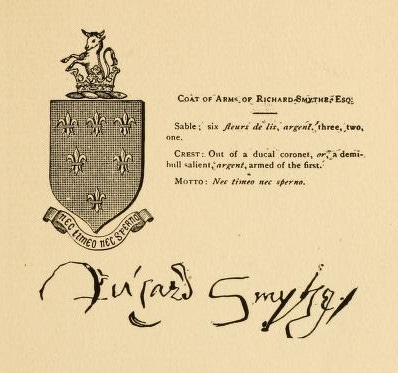 COAT OF ARMS OF RICHARD SMYTHE, ESQ.
Sable; six fleurs de lis, argent, three, two,
one.
CREST: Out of a ducal coronet, or, a demi-
bull salient, argent, armed of the first.
MOTTO: Nec timeo nec sperno.
NEC TIMEO NEC SPERNO
Ricard Smythe